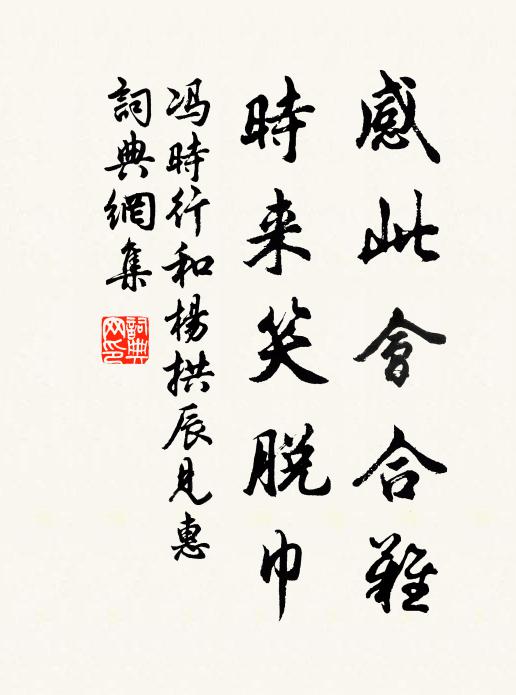 感此會合難
時来笑脱巾
冯時行和楊拱辰見惠
詞典網集
詞典网印